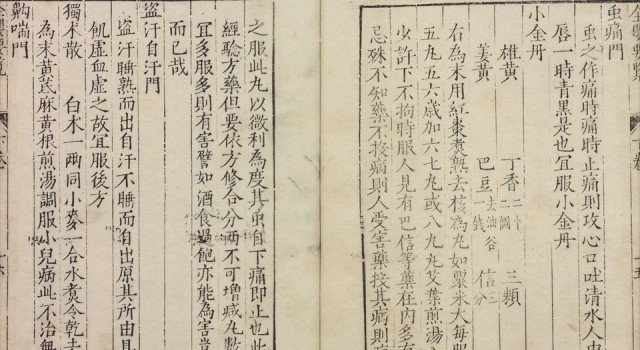 虫痛門
虫之作痛時痛時止痛則攻心口吐清水人中
唇一時青黑是也宜服小金丹
小金丹
雄黃 丁香 三賴
姜黃 巴豆 信三分
右為末用紅棗煮熟去核為丸如粟米大每服
五九五六歲加六七丸或八九丸艾葉煎湯
少許下不拘時服人見有巴信等藥在內多有
忌殊不知藥不投病則人受害藥投其病則
之服此丸以微利為度其虫自下痛即止也此
經驗方藥但要依方修合分兩不可增減丸數
宜多服多則有害譬如酒食過飽亦能為害豈
而已哉
盜汗自汗門
盜汗睡熟而出自汗不睡而自出原其所由
飢虛血虛之故宜服後方
獨木散 白木一兩同小麥一合水煮令乾去
為末黃芪麻黃根煎湯調服小兒病此不治無
齁喘門